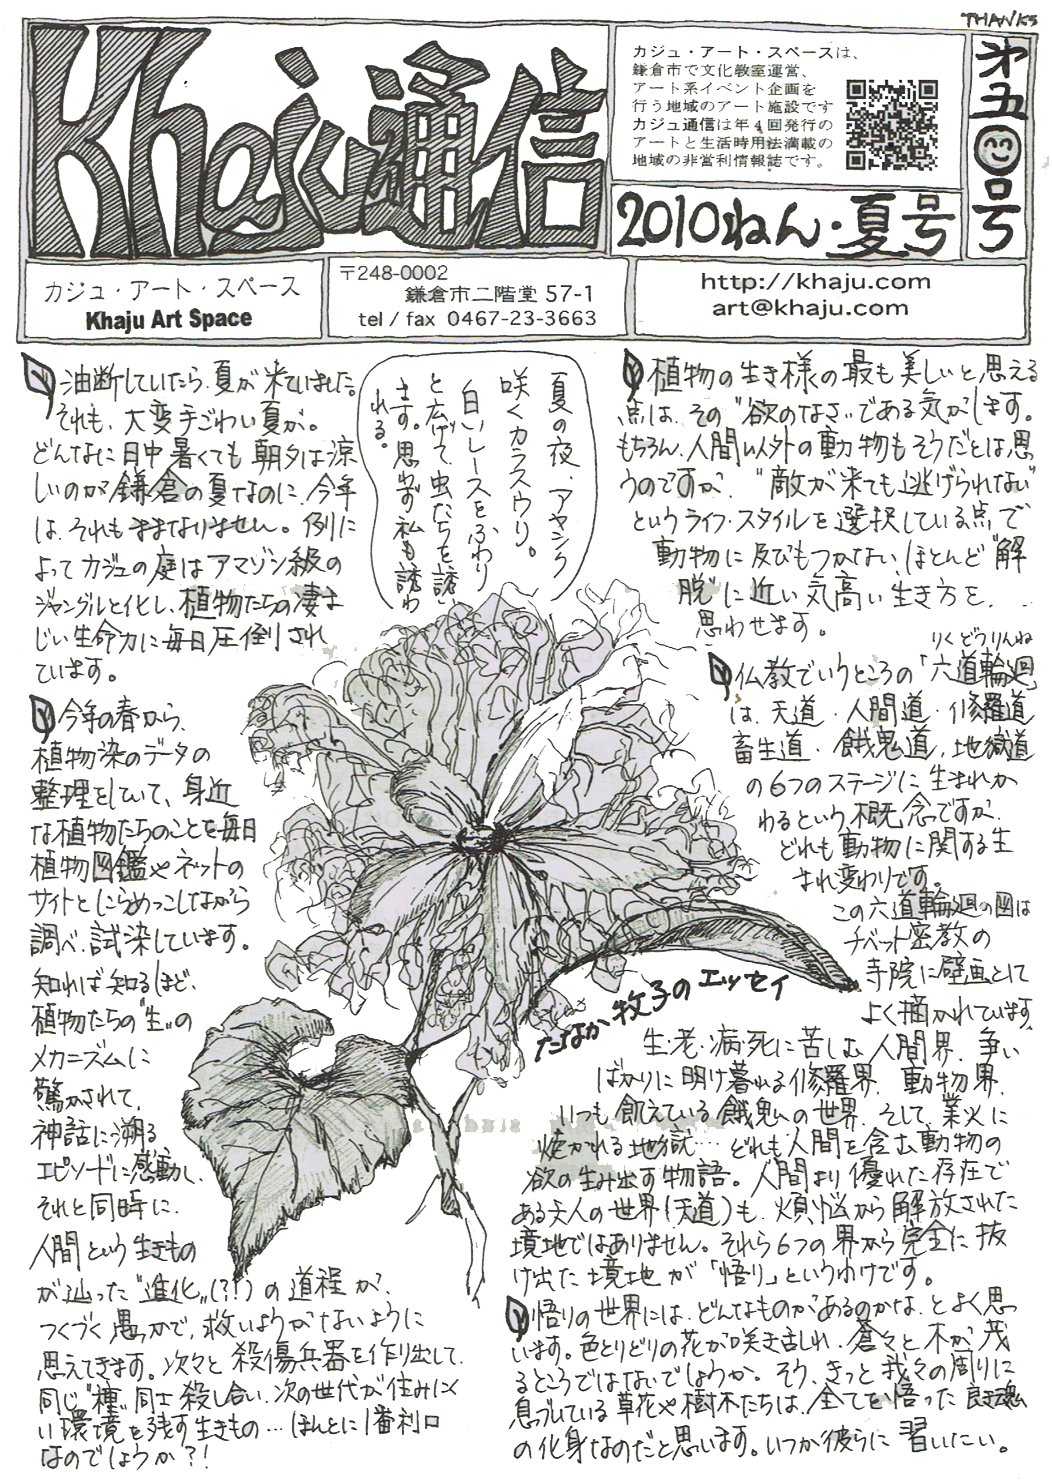 THANKS
Khaju通信
カジュ・アート・スペースは、
鎌倉市で文化教室運営、
アート系イベント企画を
行う地域のアート施設です
カジュ通信は年4回発行の
アートと生活時用法満載の
地域の非営利情報誌です。
2010ねん・夏号
第五〇号
カジュ・アート・スペース
Khaju Art Space
〒248-0002
鎌倉市二階堂 57-1
tel / fax 0467-23-3663
http://khaju.com
art@khaju.com
油断していたら、夏が来ていました。
それも、大変手ごわい夏が。
どんなに日中暑くても朝夕は涼
しいのが鎌倉の夏なのに、今年
は、それもままなりません。例に
よってカジュの庭はアマゾン級の
ジャングルと化し、植物たちの凄ま
じい生命力に毎日圧倒され
ています。
今年の春から、
植物染のデータの
整理をしていて、身近
な植物たちのことを毎日
植物図鑑やネットの
サイトとにらめっこしながら
調べ、試染しています。
知れば知るほど、
植物たちの“生”の
メカニズムに
驚かされて、
神話に遡る
エピソードに感動し、
それと同時に、
人間という生きもの
が辿った“進化”(?!)の道程が、
つくづく愚かで、救いようがないように
思えてきます。次々と殺傷兵器を作り出して、
同じ“種”同士殺し合い、次の世代が住みにく
い環境を残す生きもの…ほんとに1番利口
なのでしょうか?!
夏の夜、ヒヤシンク
咲くカラスウリ。
白いレースをふわり
と広げて、虫たちを誘い
ます。思わず私も誘わ
れる。
植物の生き様の最も美しいと思える
点は、その“欲のなさ”である気がします。
もちろん、人間以外の動物もそうだとは思
うのですが、“敵が来ても逃げられない”
というライフ・スタイルを選択している点で
動物に及びもつかない、ほとんど“解
脱”に近い気高い生き方を、
思わせます。
りくどうりんね
仏教でいうところの「六道輪廻」
は、天道・人間道・修羅道
畜生道・餓鬼道・地獄道
の6つのステージに生まれか
わるという概念ですが、
どれも動物に関する生
まれ変わりです。
この六道輪廻の図は
チベット密教の
寺院に壁画として
よく描かれています。
生・老・病・死に苦しむ人間界、争い
ばかりに明け暮れる修羅界、動物界、
いつも飢えている餓鬼の世界、そして、業火に
焼かれる地獄……どれも人間を含む動物の
欲の生み出す物語。人間より優れた存在で
ある天人の世界(天道)も、煩悩から解放された
境地ではありません。それら6つの界から完全に抜
け出た境地が「悟り」というわけです。
悟りの世界には、どんなものがあるのかな、とよく思
います。色とりどりの花が咲き乱れ、蒼々と木が茂
るところではないでしょうか。そう、きっと我々の周りに
息づいている草花や樹木たちは、全てを悟った良き魂
の化身なのだと思います。いつか彼らに習いたい。
たなか牧子のエッセイ